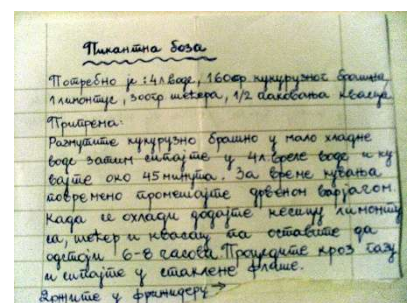 Пикантна боза
Потребно је: 4л воде, 160гр кукурузног брашна
1 лимонтус, 300гр шећера, 1/2 паковања квасца
Припрема:
Размутите кукурузно брашно у мало хладне
воде затим сипајте у 4л вреле воде и ку
вајте око 45 минута. За време кувања
повремено промешајте дрвеном варјачом.
Када се охлади додајте кесицу лимонту
са, шећер и квасац па оставите да
одстоји 6-8 часова. Процедите кроз газу
и сипајте у стаклене флаше.
Држите у фрижидеру →